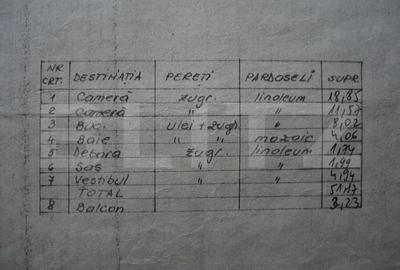 NR. CRT. DESTINATIA PERETI PARDOSELI SUPR.
1 Cameră zugr. linoleum 18,85
2 Cameră " " 11,57
3 Buc. ulei + zugr. " 8,02
4 Baie " " mozaic 4,06
5 Debara zugr. linoleum 1,74
6 Sas " 1,99
7 Vestibul " " 4,94
TOTAL 51,17
8 Balcon 3,23